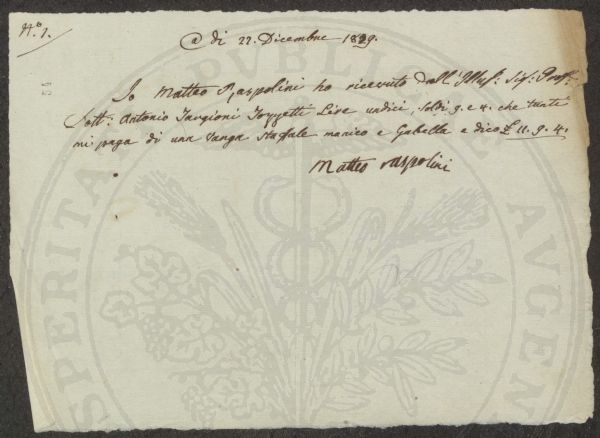 N.° 7.
@ di 22. Dicembre 1829.
Io Matteo Raspolini ho ricevuto dall' Illus: Sig: Prof:
Dott: Antonio Targioni Tozzetti Lire undici, soldi 9. e 4. che tante
mi paga di una Vanga Staffale manico e Gabella e dico £ 11. 9. 4.
Matteo raspolini
PUBLICAE
PROSPERITATI
AUGENDAE